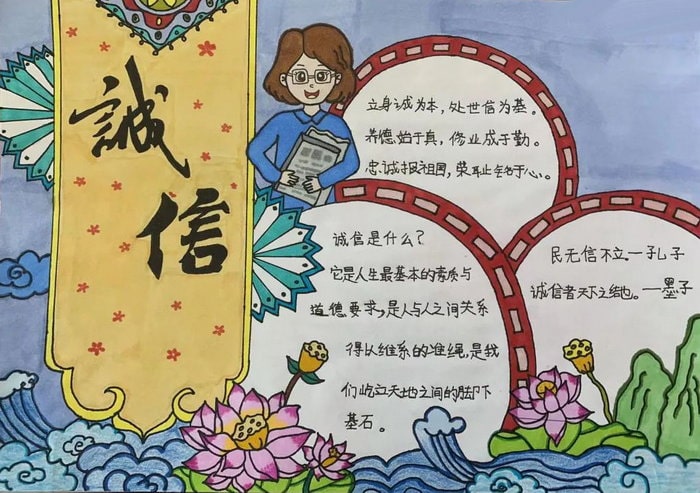 誠
信
立身诚为本，处世信为基。
养德始于真，修业成于勤。
忠诚报祖国，荣耻铭于心。
诚信是什么？
它是人生最基本的素质与
道德要求，是人与人之间关系
得以维系的准绳，是我
们屹立天地之间的脚下
基石。
民无信不立。一孔子
诚信者天下之结也。一墨子